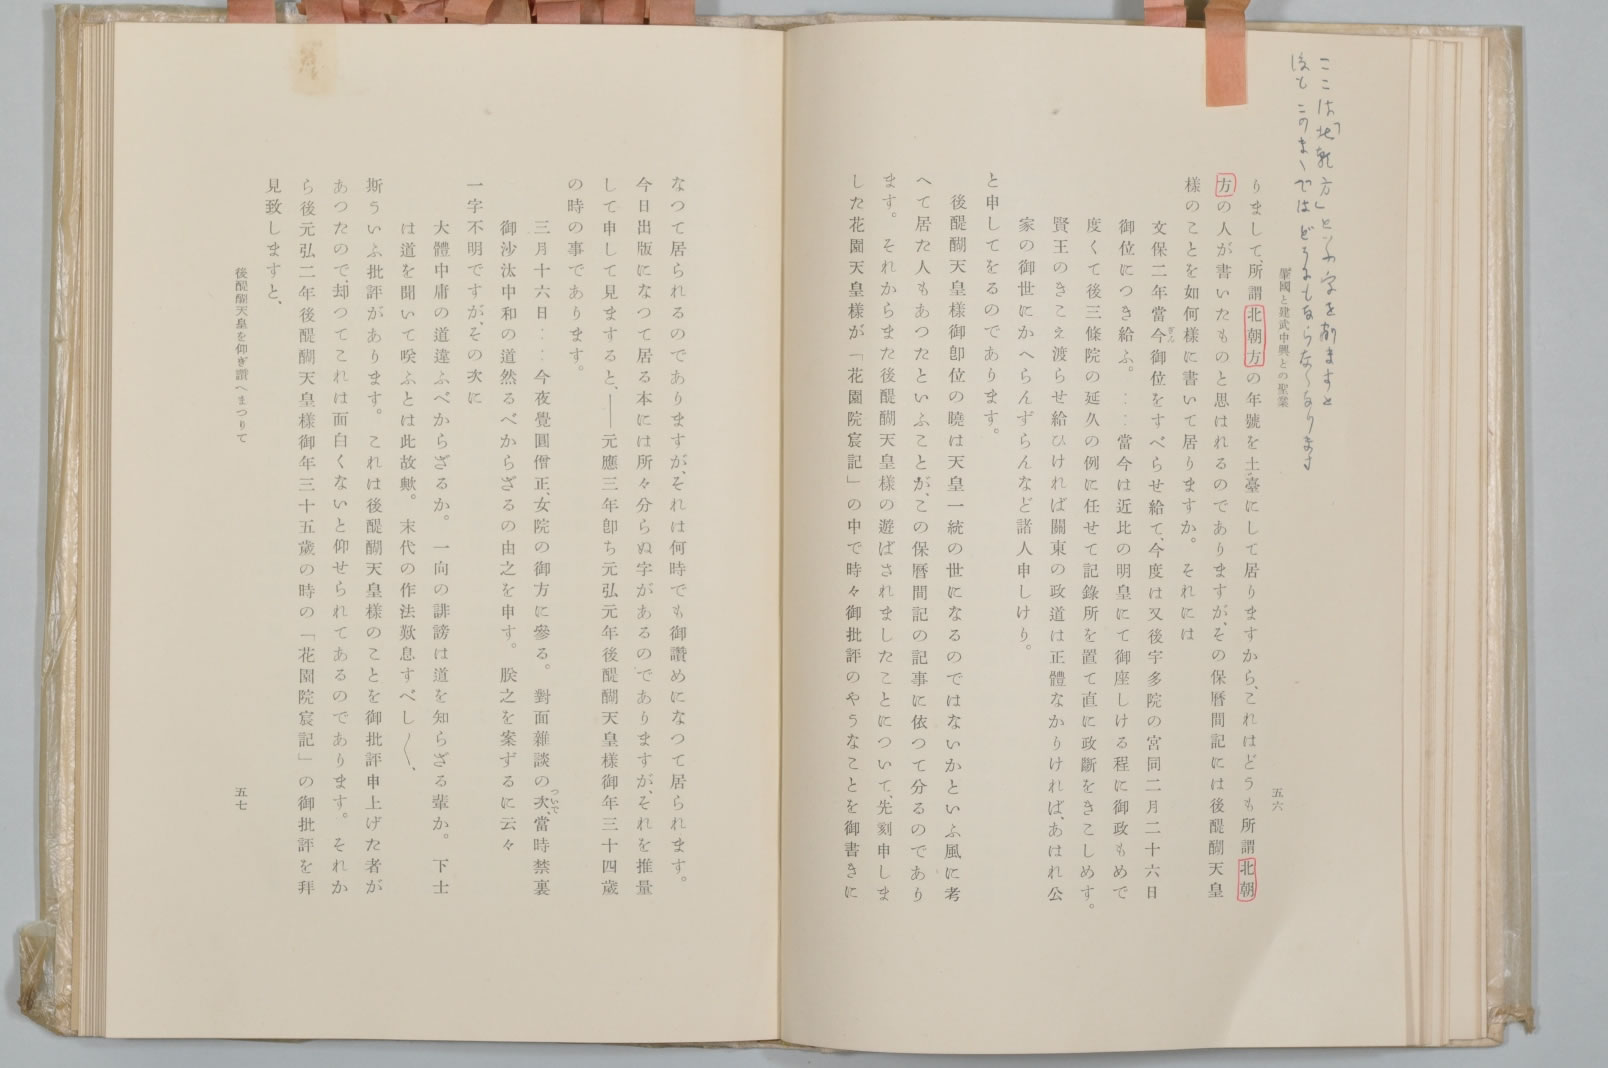 ここは「北朝方」といふ字を削ますと
後も このまゝではどうにもならなくなります
肇國と建武中興との聖業
五六
りまして、所謂北朝方の年號を土臺にして居りますから、これはどうも所謂北朝
方の人が書いたものと思はれるのでありますが、その保曆間記には後醍醐天皇
樣のことを如何樣に書いて居りますか。それには
文保二年當今御位をすべらせ給て、今度は又後宇多院の宮同二月二十六日
ぎん
御位につき給ふ。‥‥當今は近比の明皇にて御座しける程に御政もめで
度くて後三條院の延久の例に任せて記錄所を置て直に政斷をきこしめす。
賢王のきこえ渡らせ給ひければ關東の政道は正體なかりければ、あはれ公
家の御世にかへらんずらんなど諸人申しけり。
と申してをるのであります。
後醍醐天皇樣御卽位の曉は天皇一統の世になるのではないかといふ風に考
へて居た人もあつたといふことが、この保曆間記の記事に依つて分るのであり
ます。それからまた後醍醐天皇樣の遊ばされましたことについて、先刻申しま
した花園天皇樣が「花園院宸記」の中で時々御批評のやうなことを御書きに
なつて居られるのでありますが、それは何時でも御讚めになつて居られます。
今日出版になつて居る本には所々分らぬ字があるのでありますが、それを推量
して申して見ますると、――元應三年卽ち元弘元年後醍醐天皇樣御年三十四歲
の時の事であります。
三月十六日‥‥今夜覺圓僧正、女院の御方に參る。對面雜談の次、當時禁裏
ついで
御沙汰中和の道然るべからざるの由之を申す。朕之を案ずるに云々
一字不明ですが、その次に
大體中庸の道違ふべからざるか。一向の誹謗は道を知らざる輩か。下士
は道を聞いて咲ふとは此故歟。末代の作法歎息すべし〳〵、
斯ういふ批評があります。これは後醍醐天皇樣のことを御批評申上げた者が
あつたので、却つてこれは面白くないと仰せられてあるのであります。それか
ら後元弘二年後醍醐天皇樣御年三十五歲の時の「花園院宸記」の御批評を拜
見致しますと、
後醍醐天皇を仰ぎ讚へまつりて
五七